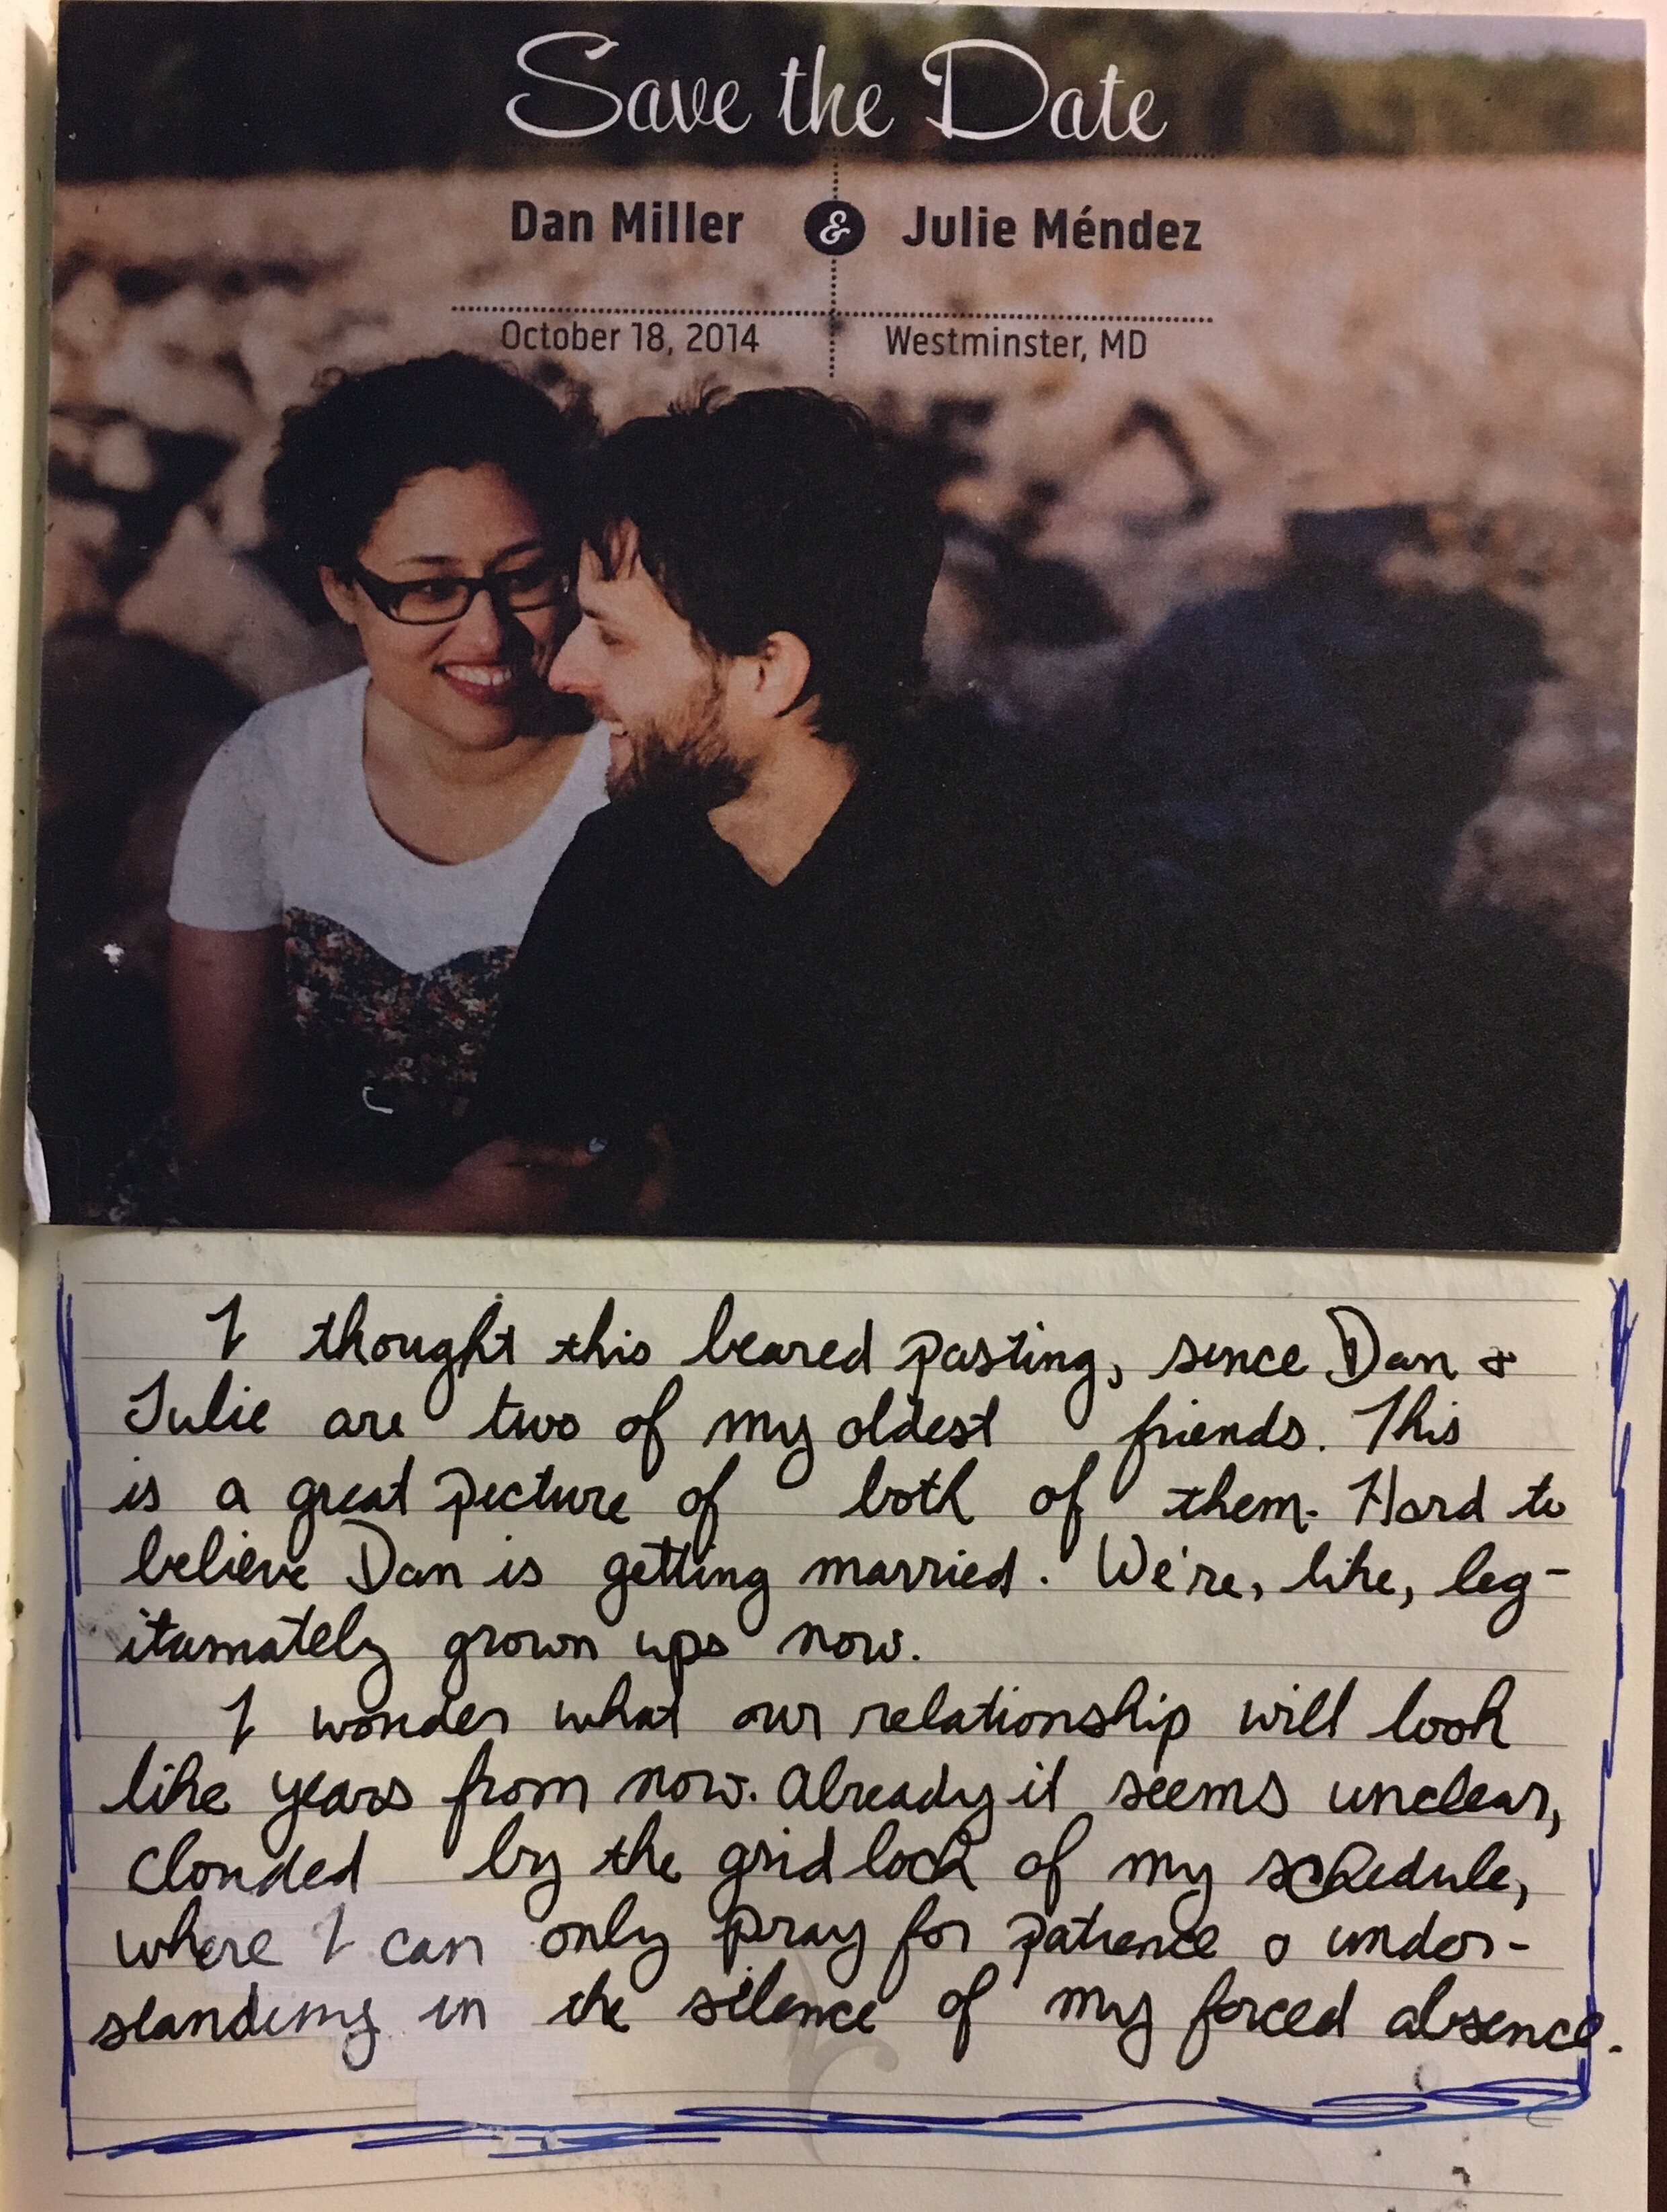 Save the Date
Dan Miller & Julie Méndez
October 18, 2014 Westminster, MD
I thought this beared pasting, since Dan &
Julie are two of my oldest friends. This
is a great picture of both of them. Hard to
believe Dan is getting married. We're, like, leg-
itimately grown ups now.
I wonder what our relationship will look
like years from now. Already it seems unclear,
clouded by the gridlock of my schedule,
where I can only pray for patience & under-
standing in the silence of my forced absence.